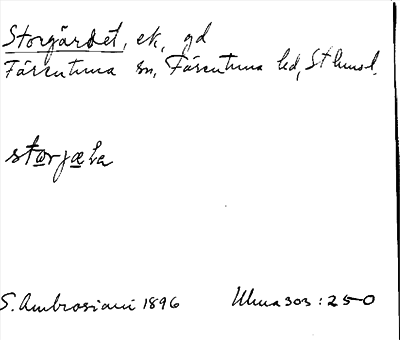 Storgärdet, ek, gd
Färentuna sn, Färentuna hd, Sthmsl.
storjæla
S. Ambrosiani 1896 Ulma 303:250